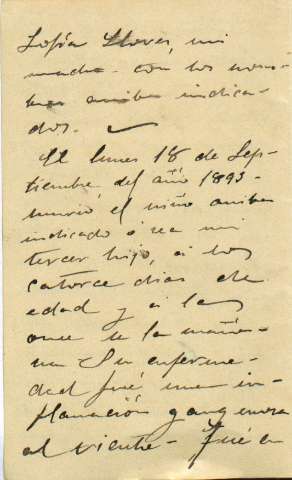 Sofía Llovet, mi
macho con los nom-
bres arriba indica-
dos.
El lunes 18 de Sep-
tiembre, del año 1893-
murió el niño arriba
indicado ó sea mi
tercer hijo, á los
catorce dias de
edad y á las
once de la maña-
na Su enferme-
dad fué una in-
flamación gangrenosa
al vientre- Fué en